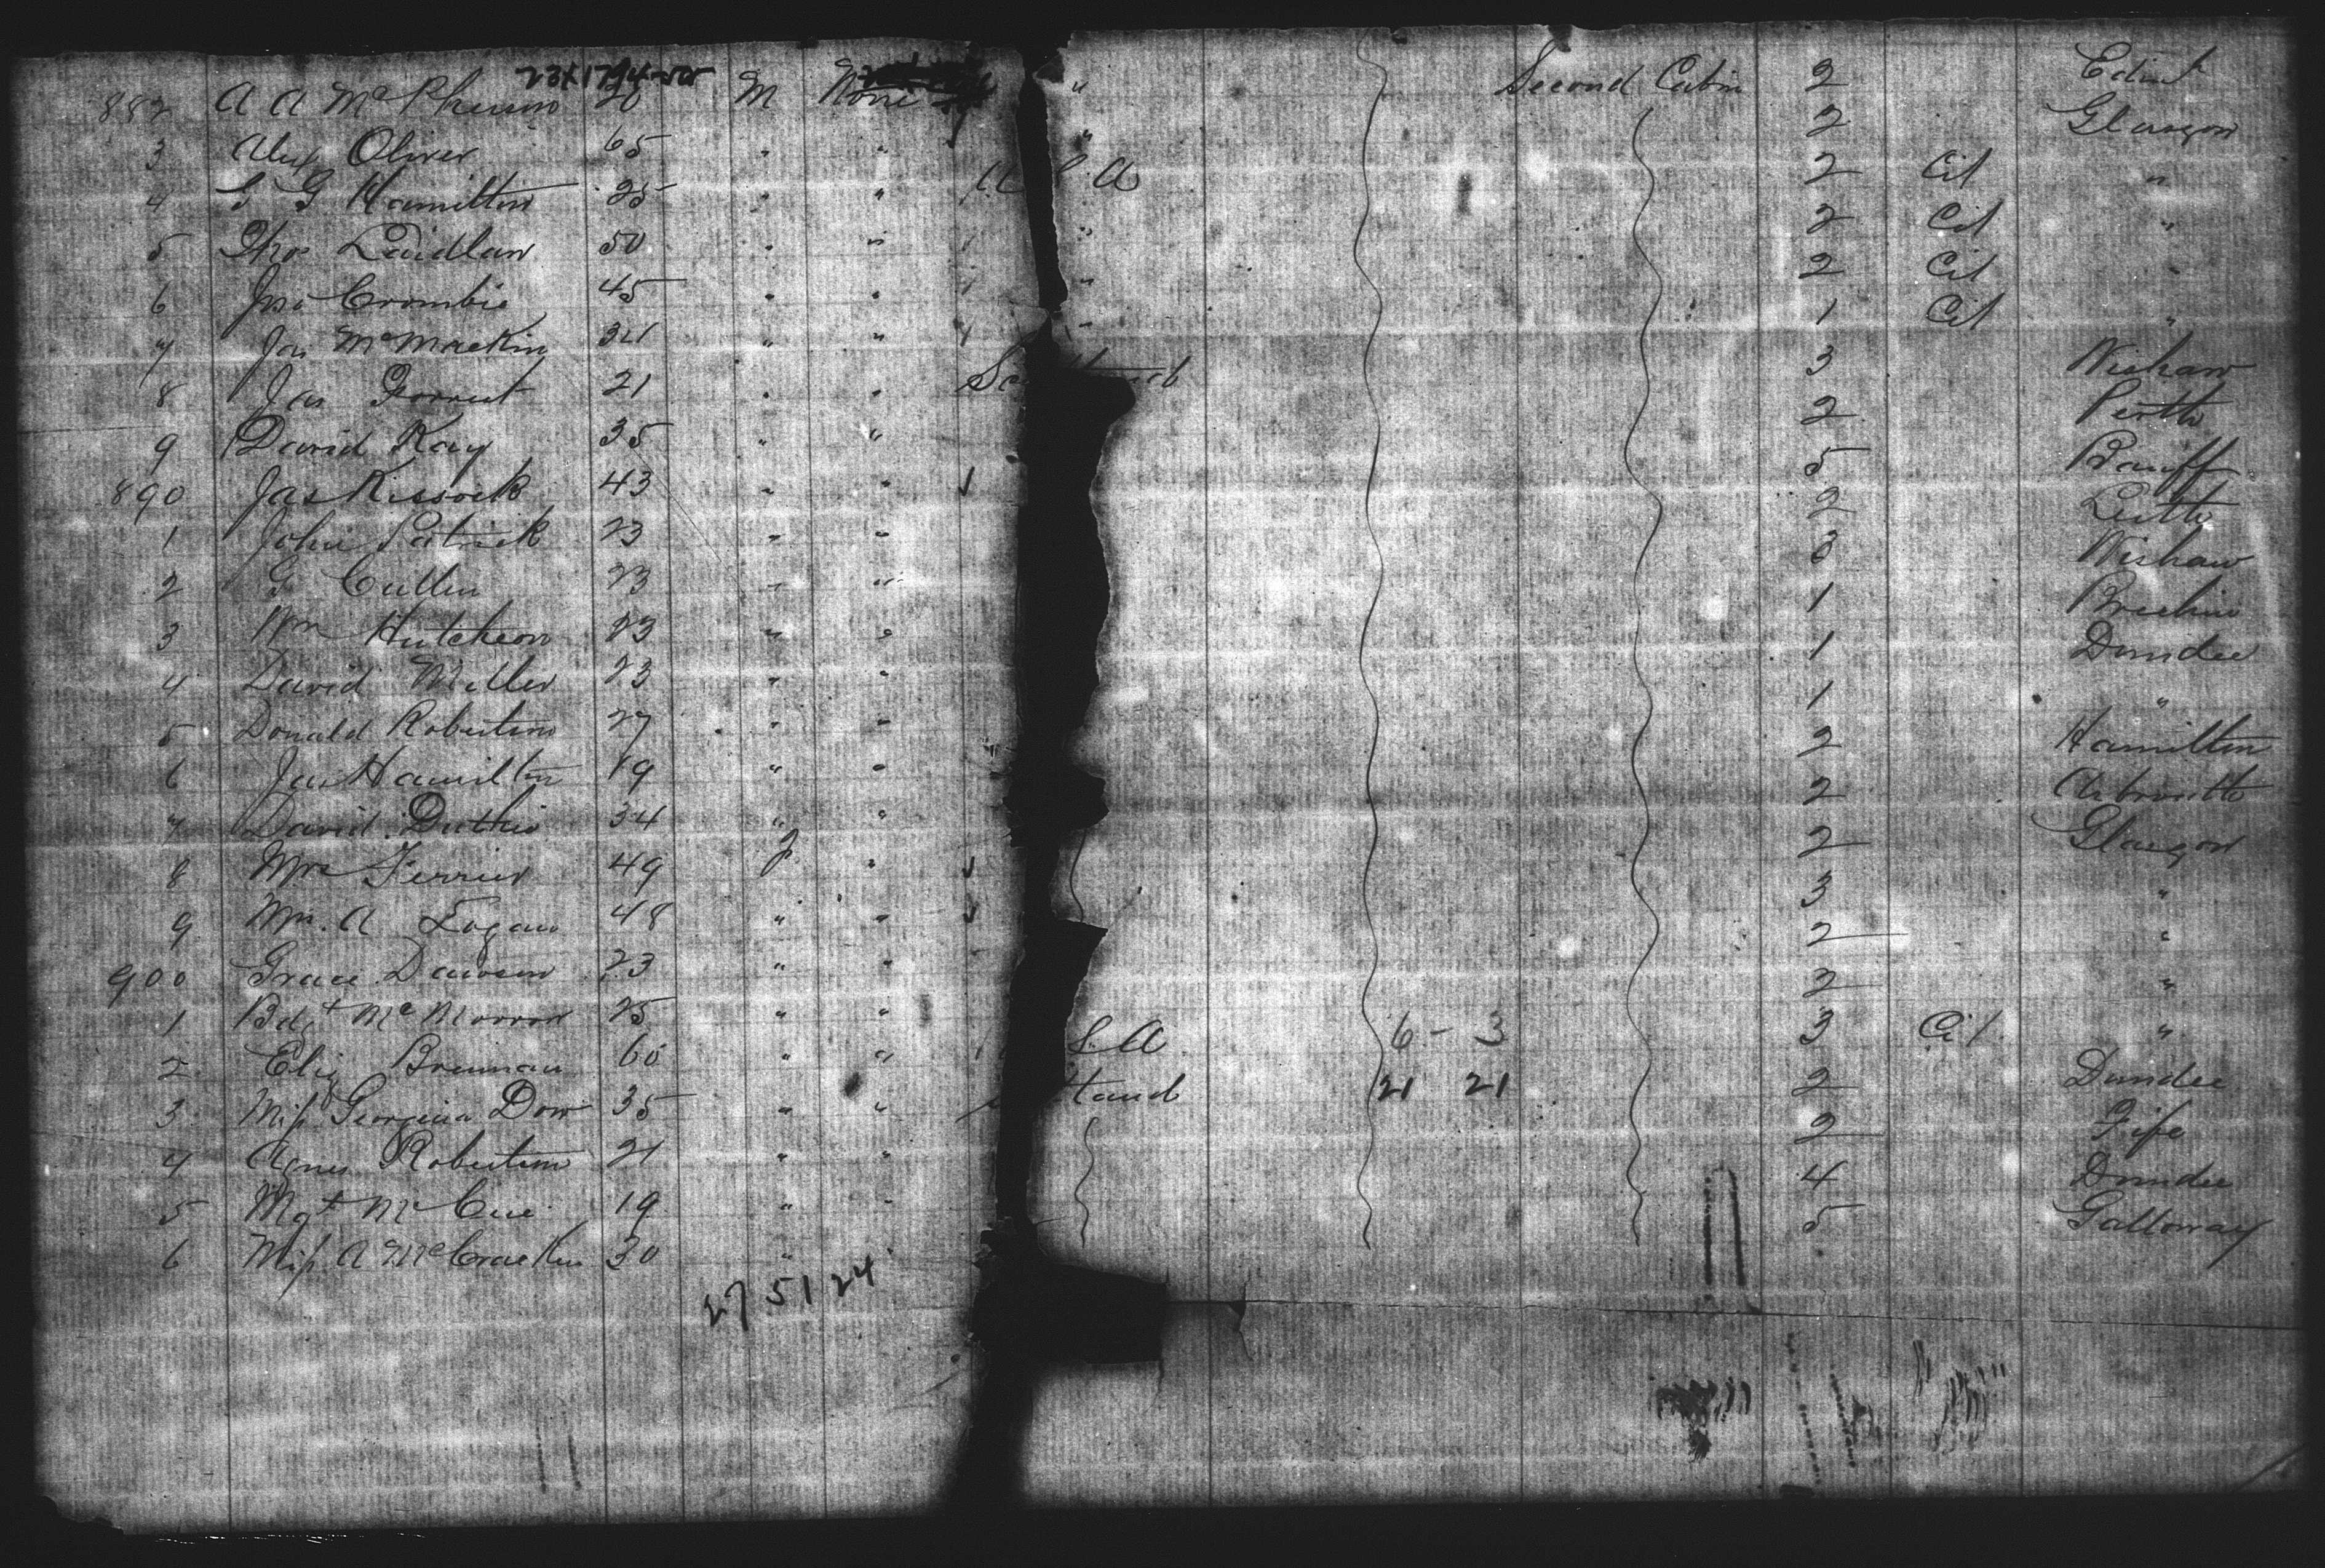 882 A A McPherson 20 M None " Second Cabin 2 Edinh
3 Alex Oliver 65 " " " 2 Glasgow
4 G Hamilton 25 " " U S. A 2 Cit "
5 Thos Laidlaw 50 " " " 2 Cit "
6 Jno Crombie 45 " " " 2 Cit "
7 Jas McMackin 34 " " " 1 Cit "
8 Jas Forrest 21 " " 3 Wishaw
9 David Kay 35 " " 2 Perth
890 Jas Kissock 43 " " 5 Banff
1 John Patrick 23 " " 2 Leith
2 G Cullen 23 " " 3 Wishaw
3 Wm Hutcheon 23 " " 1 Brechin
4 David Miller 23 " " 1 Dundee
5 Donald Robertson 27 " " 1 "
6 Jas Hamilton 19 " " 2 Hamilton
7 David Duthie 34 " " 2 Arbroath
8 Mrs Ferrier 49 f " 2 Glasgow
9 Mrs. A Logan 48 " " 3 "
900 Grace Dawson 23 " " 2 "
1 Bdgt McMorrow 25 " " 2 "
2 Eliz Brennan 60 " " S. A 6 - 3 3 Cit "
3 Miss Georgina Dow 35 " " 21 21 2 Dundee
4 Agnes Robertson 21 " " 2 Fife
5 Mgt McCue 19 " " 4 Dundee
6 Miss A McCracken 30 " 5 Galloway
27 51 24